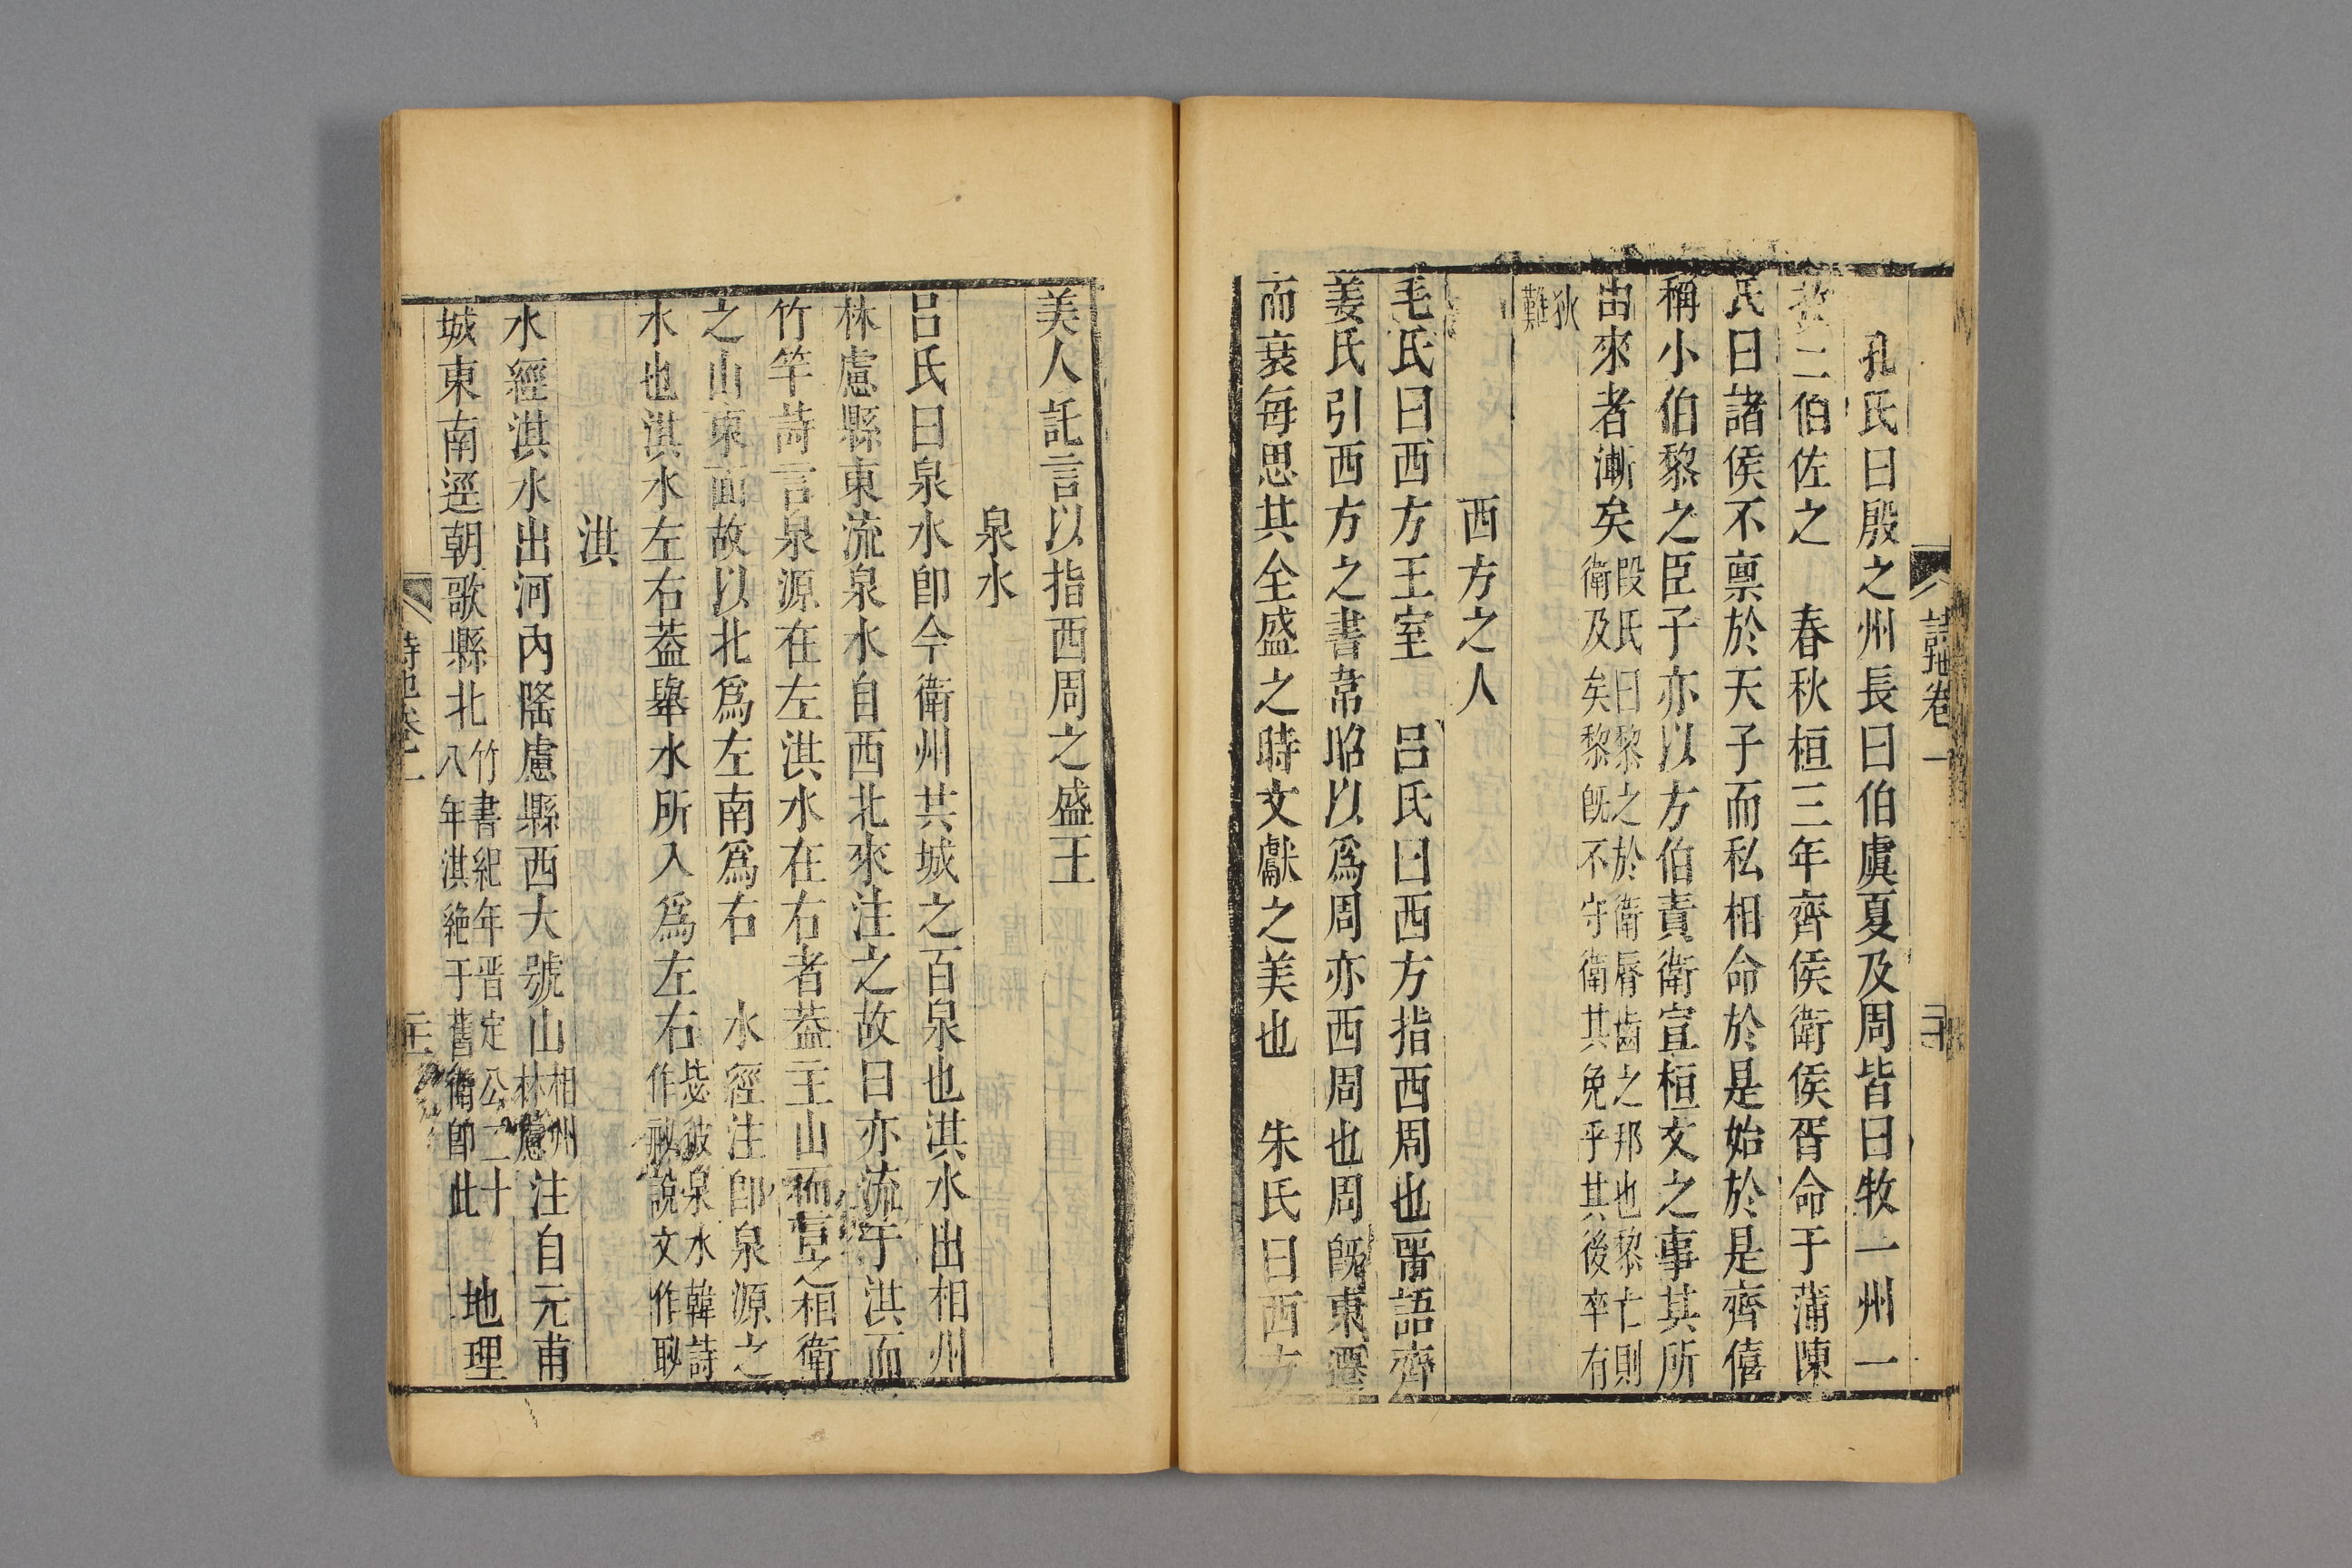 詩地卷一
二十
孔氏曰殷之州長曰伯虞夏及周皆曰牧一州一
牧二伯佐之　春秋桓三年齊侯衛侯胥命于蒲陳
氏曰諸侯不禀於天子而私相命於是始於是齊僖
稱小伯黎之臣子亦以方伯責衛宣桓文之事其所
由來者漸矣段氏曰黎之於衛脣齒之邦也黎亡則
衛及矣黎既不守衛其免乎其後卒有
狄
難
西方之人
毛氏曰西方王室　呂氏曰西方指西周也晉語齊
姜氏引西方之書韋昭以為周亦西周也周旣東遷
而衰每思其全盛之時文獻之美也　朱氏曰西方
美人託言以指西周之盛王
泉水
呂氏曰泉水卽今衛州共城之百泉也淇水出相州
林慮縣東流泉水自西北來注之故曰亦流于淇而
竹竿詩言泉源在左淇水在右者葢主山而言之相衛
之山東面故以北爲左南爲右　水經注卽泉源之
水也淇水左右葢舉水所入爲左右毖彼泉水韓詩
作祕說文作䀣
淇
水經淇水出河內隆慮縣西大號山相州
林慮注自元甫
城東南逕朝歌縣北竹書紀年晋定公二十
八年淇絶于舊衛卽此　地理
詩地卷一